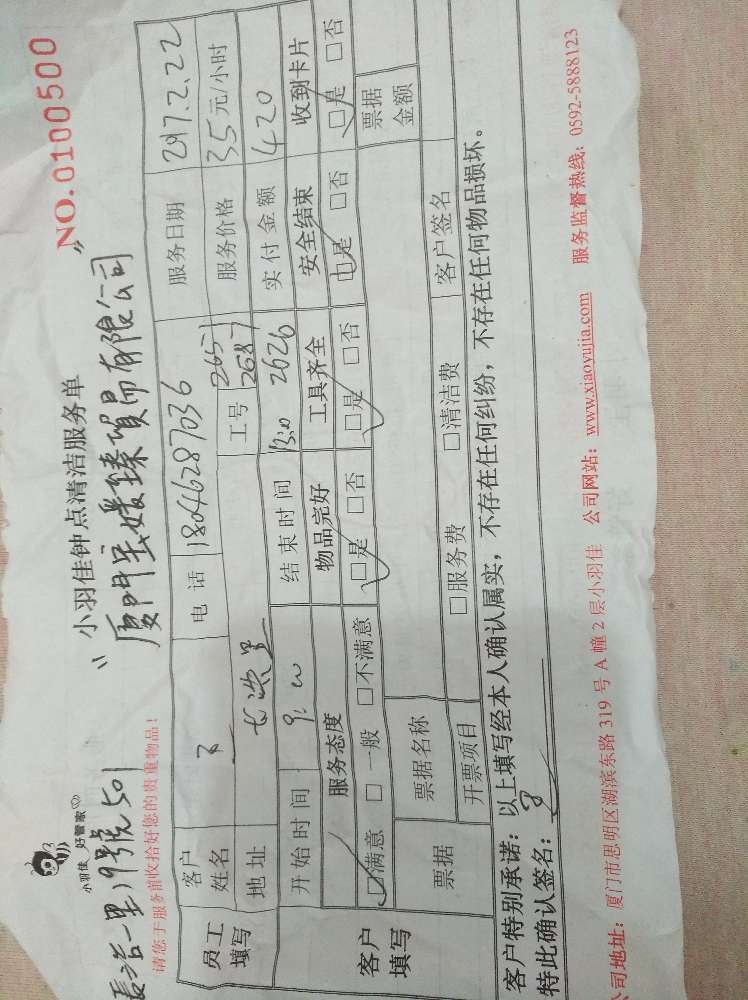 小羽佳 好管家
小羽佳钟点清洁服务单
NO.0100500
一里19號501
有限公司
请您于服务前收拾好您的贵重物品！
员工填写
客户姓名
电话 18046287036
服务日期 2017.2.22
地址
工号 2651 2687
服务价格 35元/小时
开始时间 9:00
结束时间
2626
实付金额 420
客户填写
服务态度
物品完好
工具齐全
安全结束
收到卡片
□满意 □一般 □不满意
□是 □否
□是 □否
□是 □否
□是 □否
票据
票据名称
票据金额
开票项目
□服务费
□清洁费
客户签名
客户特别承诺：以上填写经本人确认属实，不存在任何纠纷，不存在任何物品损坏。
特此确认签名：
公司地址：厦门市思明区湖滨东路 319 号 A 幢 2 层小羽佳 公司网站：www.xiaoyujia.com 服务监督热线：0592-5888123